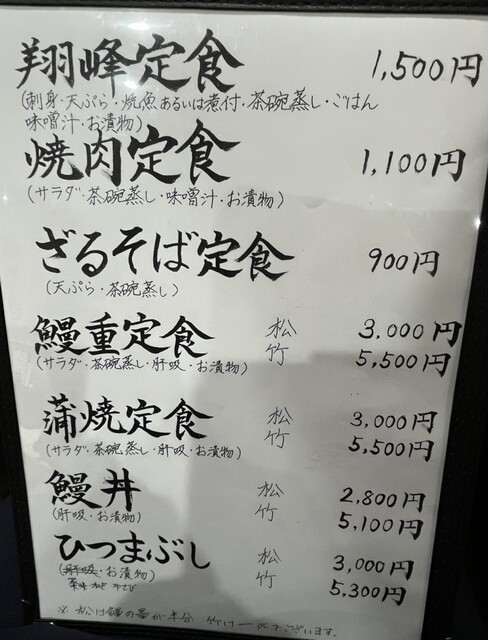 翔峰定食 1,500円
(刺身・天ぷら・焼魚あるいは煮付・茶碗蒸し・ごはん
味噌汁・お漬物)
焼肉定食 1,100円
(サラダ・茶碗蒸し・味噌汁・お漬物)
ざるそば定食 900円
(天ぷら・茶碗蒸し)
鰻重定食 松 3,000円
竹 5,500円
(サラダ・茶碗蒸し・肝吸・お漬物)
蒲焼定食 松 3,000円
竹 5,500円
(サラダ・茶碗蒸し・肝吸・お漬物)
鰻丼 松 2,800円
竹 5,100円
(肝吸・お漬物)
ひつまぶし 松 3,000円
竹 5,300円
(肝吸・お漬物)
薬味 わさび
※ 松は鰻の量が半分 竹は一匹でございます。